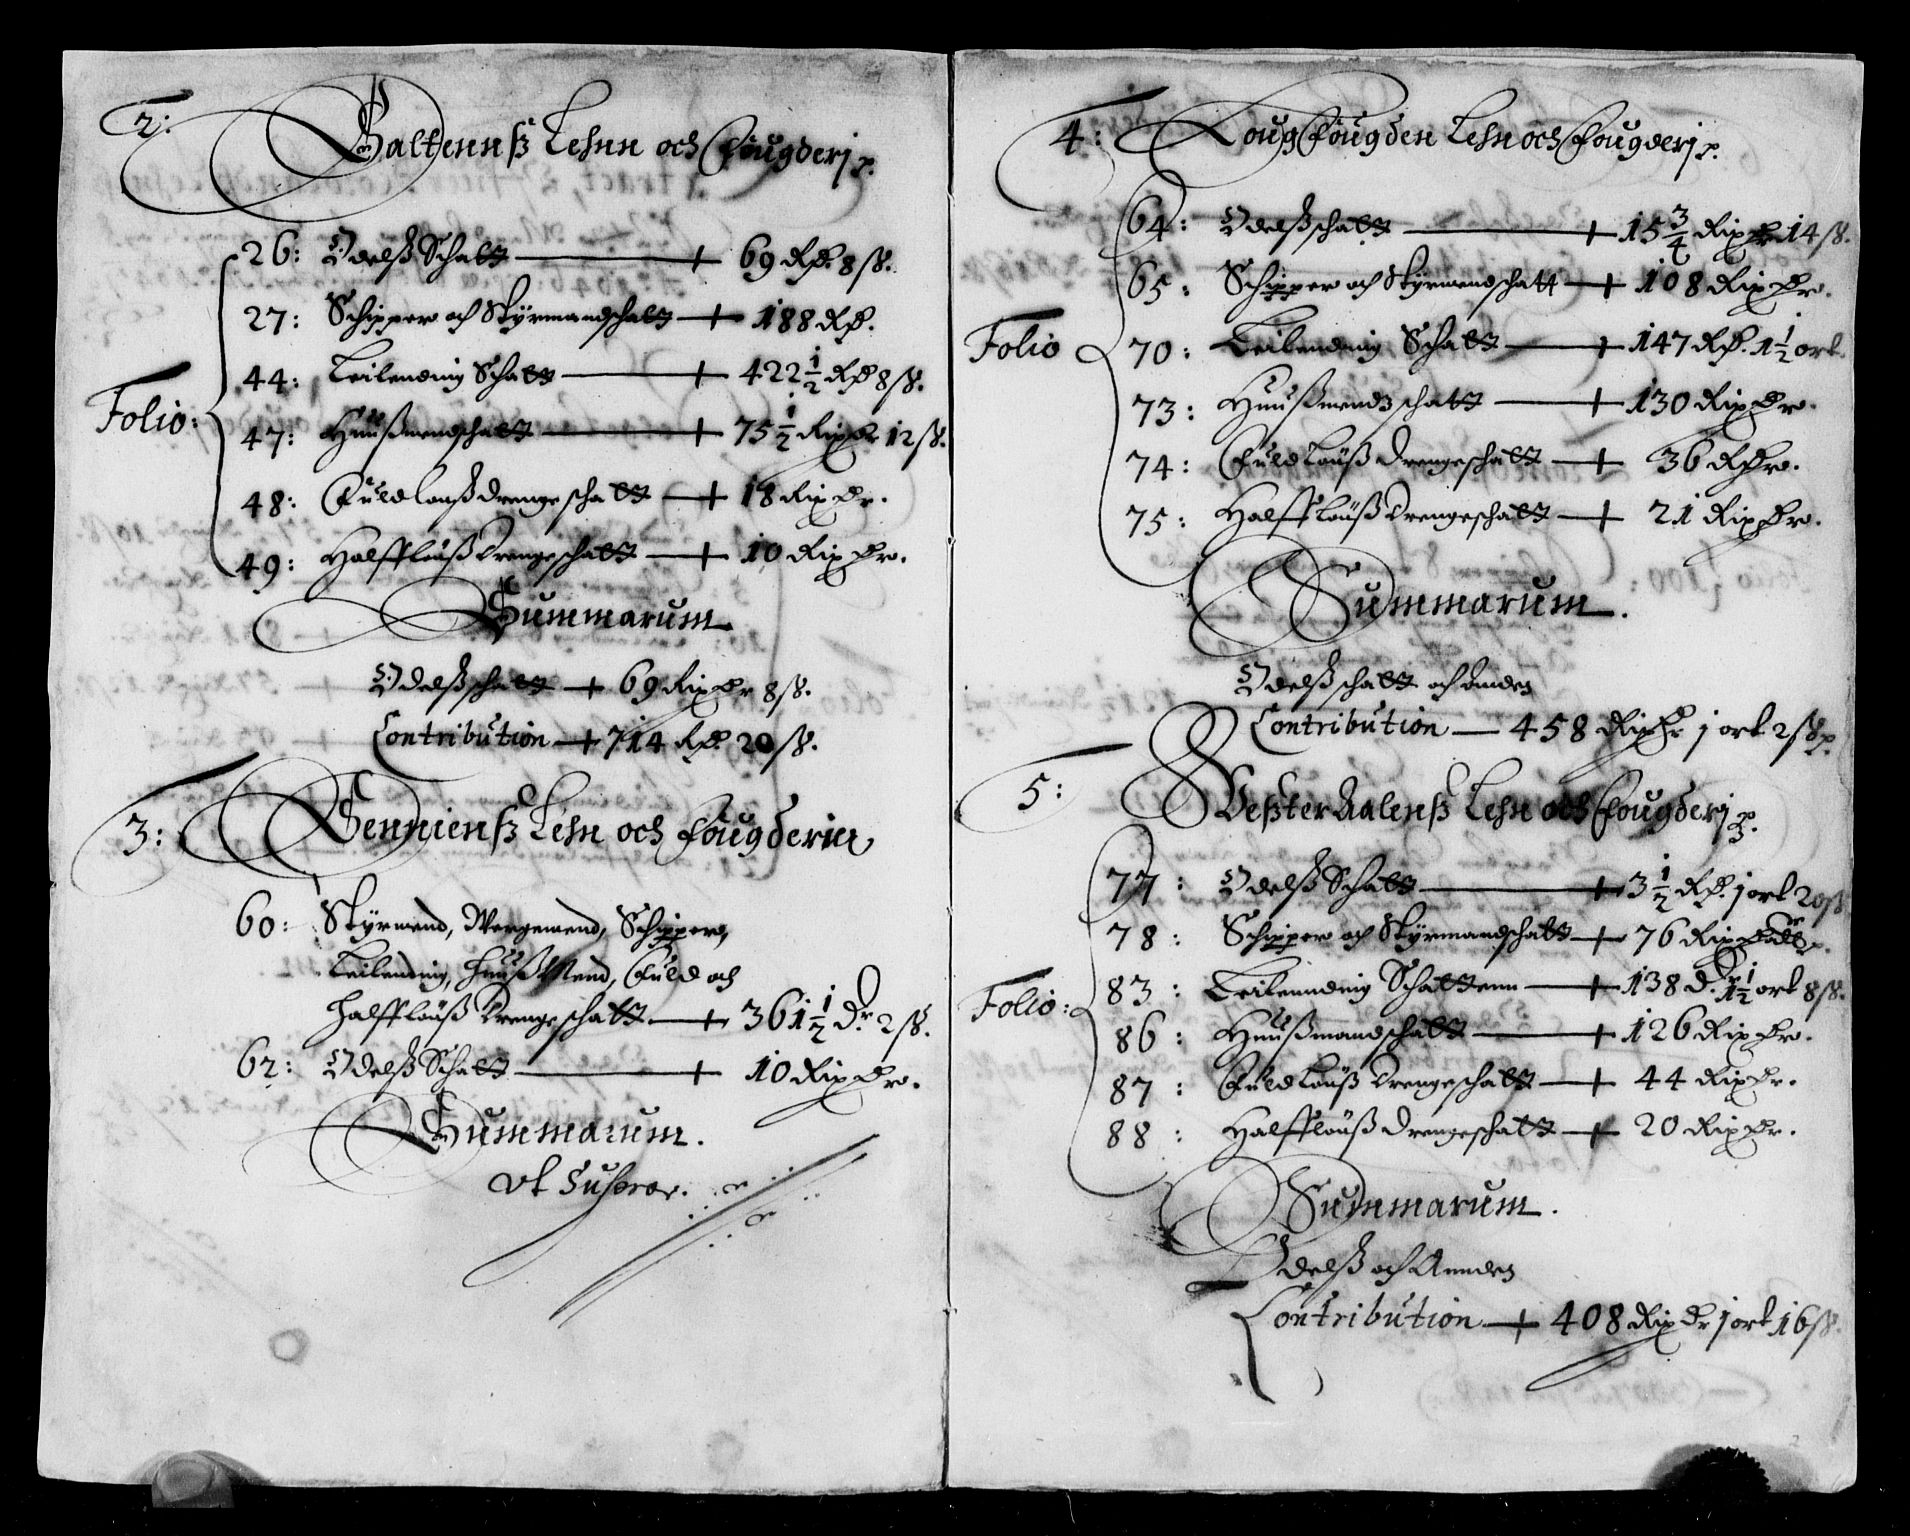 2:
Saltennß Lehnn och Fougderj p.
26: Odelß Schatt — + 69 Rd. 8 ß.
27: Schipper och Styrmandschatt — + 188 Rd.
44: Leilending Schatt — + 422 1/2 Rd 8 ß.
Folio:
47: Huußmendschatt — + 75 1/2 Rixdr 12 ß.
48: Fuld Louß drengeschatt — + 18 Rixdr.
49: Halff Louß drengeschatt — + 10 Rixdr.
Summarum
Odelß schatt + 69 Rixdr 8 ß.
Contribution + 714 Rd. 20 ß.
3: Senniens Lehn och Fougderie
60: Styrmend, Wergemend, Schipper,
Leilending, Huuß Mend, Fuld och
halff Louß drengeschatt — + 361 1/2 dr. 2 ß.
62: Odelß Schatt — + 10 Rixdr.
Summarum.
vt Supra.
4: Fougden Lehn och Fougderj p.
64: Odelß schatt — + 15 3/4 Rixdr 14 ß.
65: Schipper och Styrmendschatt — + 108 Rixdr.
Folio
70: Leilending Schatt — + 147 Rd. 1 1/2 ort.
73: Huußmendz schatt — + 130 Rixdr.
74: Fuld Louß drengeschatt — + 36 Rdr.
75: Halff Louß drengeschatt — + 21 Rixdr.
Summarum.
Odelß schatt och Anden
Contribution — 458 Rixdr 1 ort 2 ß p.
5: Weßter Aalenß Lehn och Fougderj p.
77: Odelß Schatt — + 3 1/2 Rd. 1 ort 20 ß
78: Schipper och Styrmandschatt — + 76 Rixdr.
Folio:
83: Leilennding Schattenn — + 138 dr. 1 1/2 ort 8 ß.
86: Huußmandschatt — + 126 Rixdr.
87: Fuld Louß drengeschatt — + 44 Rixdr.
88: Halff Louß drengeschatt — + 20 Rixdr.
Summarum.
Odelß och Annden
Contribution — + 408 Rixdr 1 ort 16 ß.